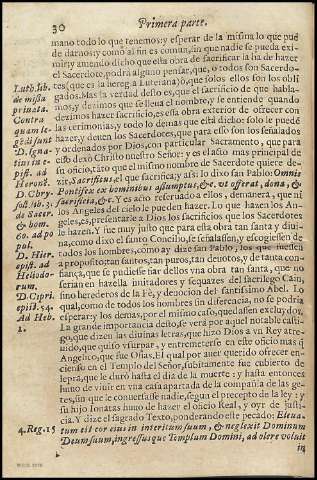 30 Primera parte.
mano todo lo que tenemos: y esperar de la misma lo que pue
de darnos: y como al fin es comun, sin que nadie se pueda exi-
mir; y auiendo dicho que esta obra de sacrificar la ha de hazer
el Sacerdote, podrá alguno pensar, que, o todos son Sacerdo-
tes (que es la heregia Luterana) ò, que solos ellos son los obli
gados. Mas la verdad desto es, que el sacrificio de que habla-
mos, y dezimos que se lleua el nombre, y se entiende quando
dezimos hazer sacrificio, es esta obra exterior de ofrecer con
las ceremonias, y todo lo demas que está dicho: solo le puedē
hazer, y deuen los Sacerdotes, que para esso son los señalados
y ordenados por Dios, con particular Sacramento, que para
esso dexò Christo nuestro Señor: y es el acto mas principal de
su oficio, tãto que el mismo nombre de Sacerdote quiere de-
zir, Sacrificans: el que sacrifica; y assi lo dixo san Pablo: Omnis
Pontifex ex hominibus assumptus, &c. vt offerat, dona, &
sacrificia, &c. Y es año reseruado a ellos, demanera, que ni
los Angeles del cielo le pueden hazer. Lo que hazen los An-
geles, es, presentarle a Dios los sacrificios que los Sacerdotes
hazen. Y fue muy justo que para esta obra tan santa y diui-
na, como dixo el santo Concilio, se señalassen, y escogiessen de
todos los hombres, como ay dize san Pablo, los que fuessen
a proposito: tan santos, tan puros, tan deuotos, y de tanta con-
fiança, que se pudiesse fiar dellos vna obra tan santa, que no
serian en hazella imitadores y sequazes del sacrilego Cain,
sino herederos de la Fè, y deuocion del santissimo Abel. Lo
qual, como de todos los hombres sin diferencia, no se podria
esperar; y los demas, por el mismo caso, quedassen excluydos.
La grande importancia desto, se verá por aquel notable casti-
go, que dizen las diuinas letras, que hizo Dios a vn Rey atre-
uido, que quiso vsurpar, y entremeterse en este oficio mas q̃
Angelico, que fue Osias. El qual por auer querido ofrecer en-
cienso en el Templo del Señor, subitamente fue cubierto de
lepra, que le durò hasta el dia de la muerte: y hasta entonces
huuo de viuir en vna casa apartada de la compañia de las ge-
tes, sin que le conuersasse nadie, segun el precepto de la ley: y
su hijo Ionatas huuo de hazer el oficio Real, y oyr de justi-
cia. Y dize el sagrado Texto, ponderando este pecado: Eleua-
tum est cor eius in interitum suum, & neglexit Dominum
Deum suum, ingressusque Templum Domini, adolere voluit
in
Luth. lib.
de missa
priuata.
Contra
quam le-
ge
D. Igna-
tiũ in e-
pist. ad
Heronē.
D. Chry-
sost. lib. 3.
de Sacer.
& hom.
60. ad po
pul.
D. Hier.
epist. ad
Heliodo-
rum.
D. Cipri.
epist. 54.
Ad Heb.
4. Reg. 15